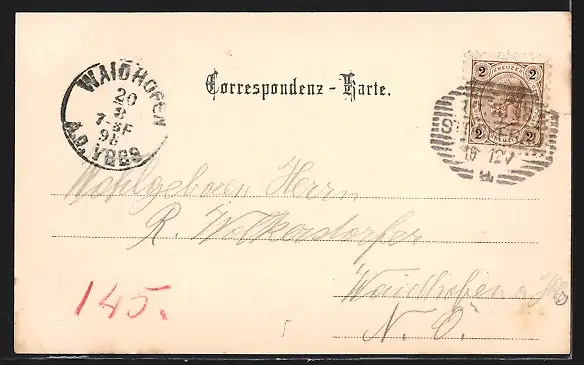 WAIDHOFEN
20
8
7-8F
98
A.D. YBBS
Correspondenz-Karte.
2 KREUZER 2
2 KREUZER 2
12V
Wohlgeboren Herrn
R. Wolkersdorfer
Waidhofen a
N. Ö.
145.